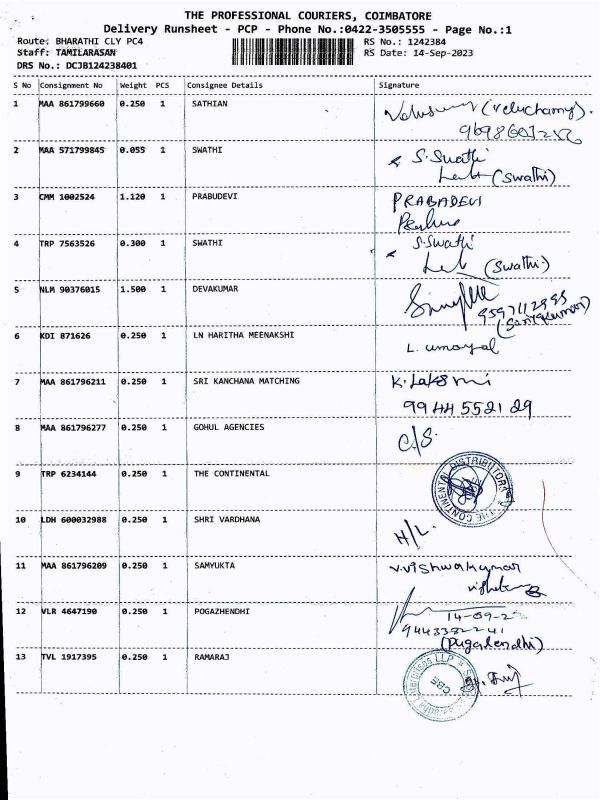 THE PROFESSIONAL COURIERS, COIMBATORE
Delivery Runsheet - PCP - Phone No.:0422-3505555 - Page No.:1
Route: BHARATHI CLY PC4 RS No.: 1242384
Staff: TAMILARASAN RS Date: 14-Sep-2023
DRS No.: DCJB124238401
S No Consignment No Weight PCS Consignee Details Signature
1 MAA 861799660 0.250 1 SATHIAN (Veluchamy).
2 MAA 571799845 0.055 1 SWATHI S.Swathi
(Swathi)
3 CMM 1002524 1.120 1 PRABUDEVI PRABADEVI
4 TRP 7563526 0.300 1 SWATHI S.Swathi
(Swathi)
5 NLM 90376015 1.500 1 DEVAKUMAR
6 KDI 871626 0.250 1 LN HARITHA MEENAKSHI L. umayal
7 MAA 861796211 0.250 1 SRI KANCHANA MATCHING K. Laksmi
99445 52129
8 MAA 861796277 0.250 1 GOHUL AGENCIES C/S.
9 TRP 6234144 0.250 1 THE CONTINENTAL THE CONTINENTAL DISTRIBUTORS
10 LDH 600032988 0.250 1 SHRI VARDHANA H/L.
11 MAA 861796209 0.250 1 SAMYUKTA V.Vishwakumar
12 VLR 4647190 0.250 1 POGAZHENDHI 14-09-2
(Pugalendhi)
13 TVL 1917395 0.250 1 RAMARAJ CBE